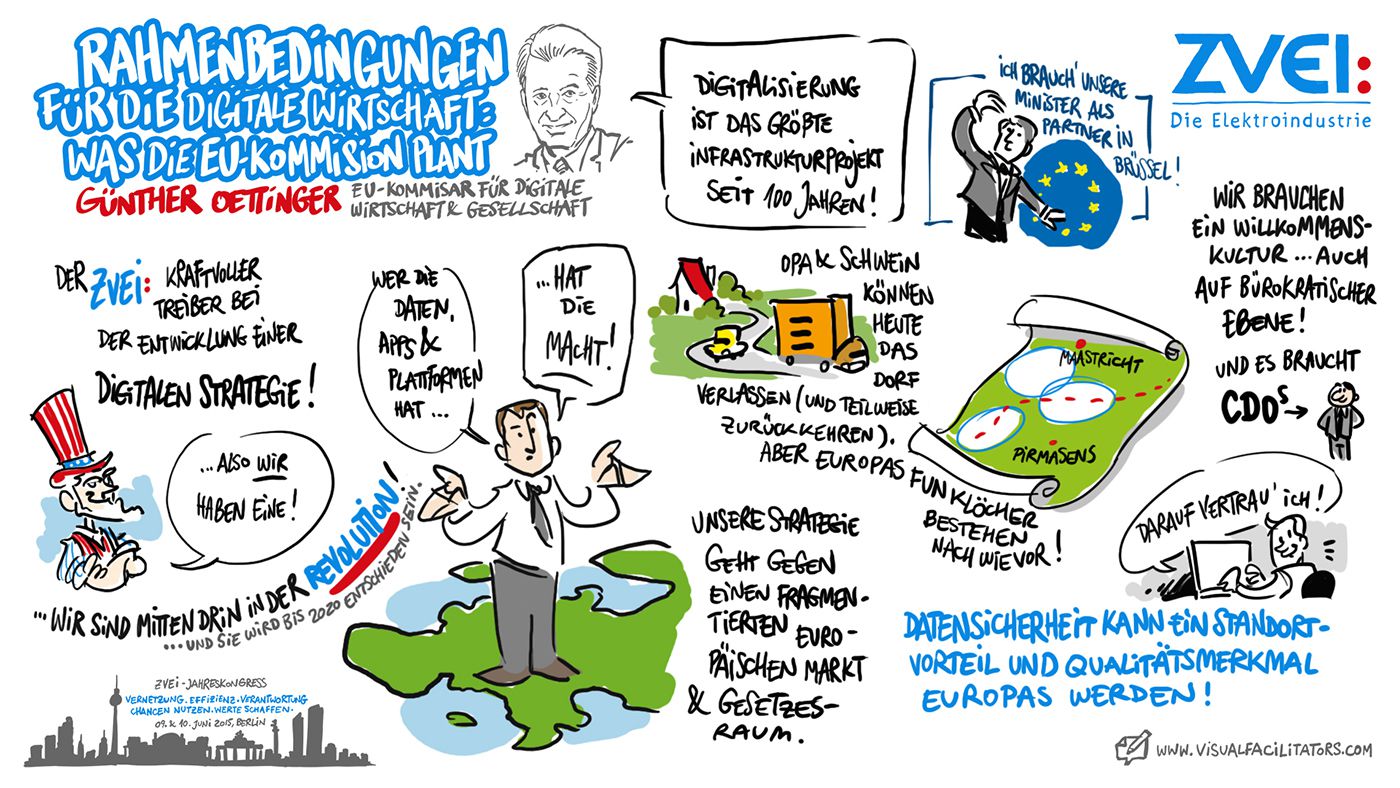 RAHMENBEDINGUNGEN
FÜR DIE DIGITALE WIRTSCHAFT:
WAS DIE EU-KOMMISION PLANT
GÜNTHER OETTINGER
EU-KOMMISAR FÜR DIGITALE
WIRTSCHAFT & GESELLSCHAFT
DIGITALISIERUNG
IST DAS GRÖßTE
INFRASTRUKTURPROJEKT
SEIT 100 JAHREN!
ICH BRAUCH' UNSERE
MINISTER ALS
PARTNER IN
BRÜSSEL!
ZVEI:
Die Elektroindustrie
WIR BRAUCHEN
EIN WILLKOMMENS-
KULTUR ... AUCH
AUF BÜROKRATISCHER
EBENE!
UND ES BRAUCHT
CDOs →
DER ZVEI: KRAFTVOLLER
TREIBER BEI
DER ENTWICKLUNG EINER
DIGITALEN STRATEGIE!
... ALSO WIR
HABEN EINE!
WER DIE
DATEN,
APPS &
PLATTFORMEN
HAT ...
... HAT
DIE
MACHT!
... WIR SIND MITTEN DRIN IN DER REVOLUTION!
... UND SIE WIRD BIS 2020 ENTSCHIEDEN SEIN.
OPA & SCHWEIN
KÖNNEN
HEUTE
DAS
DORF
VERLASSEN (UND TEILWEISE
ZURÜCKKEHREN).
ABER EUROPAS FUNKLÖCHER
BESTEHEN
NACH WIE VOR!
MAASTRICHT
PIRMASENS
UNSERE STRATEGIE
GEHT GEGEN
EINEN FRAGMEN-
TIERTEN EURO-
PÄISCHEN MARKT
& GESETZES-
RAUM.
DARAUF VERTRAU' ICH!
DATENSICHERHEIT KANN EIN STANDORT-
VORTEIL UND QUALITÄTSMERKMAL
EUROPAS WERDEN!
ZVEI-JAHRESKONGRESS
VERNETZUNG.EFFIZIENZ.VERANTWORTUNG
CHANCEN NUTZEN.WERTE SCHAFFEN.
09. & 10. JUNI 2015, BERLIN
WWW.VISUALFACILITATORS.COM